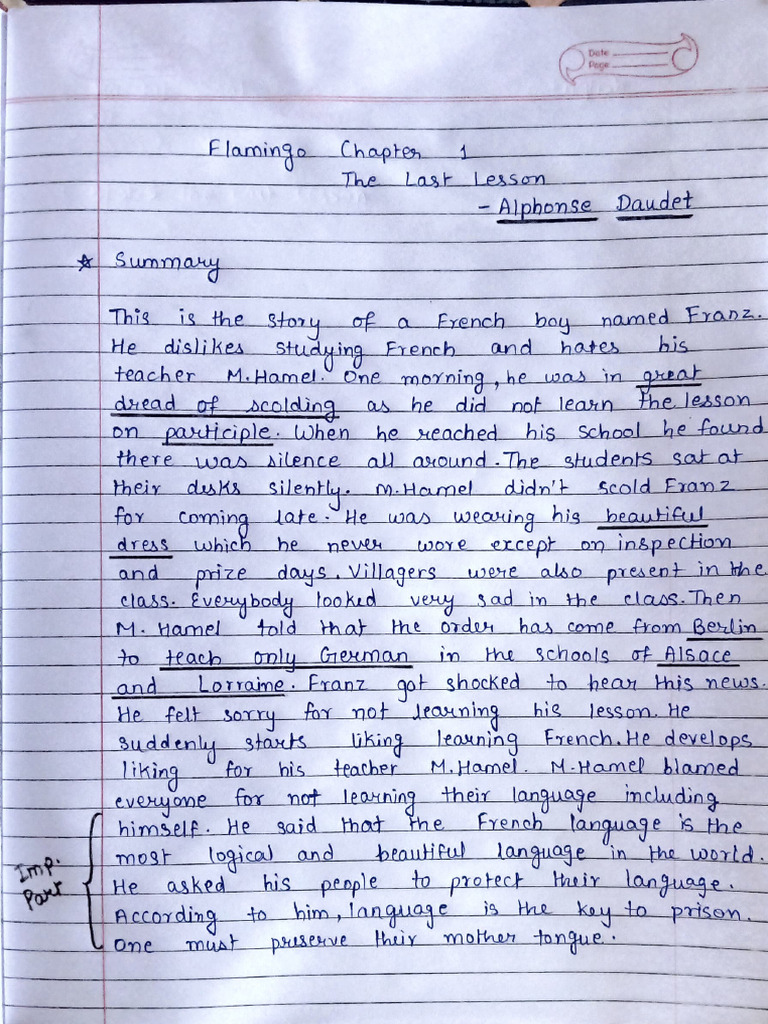 Date
Page
Flamingo Chapter 1
The Last Lesson
- Alphonse Daudet
☆ Summary
This is the story of a French boy named Franz.
He dislikes studying French and hates his
teacher M.Hamel. One morning, he was in great
dread of scolding as he did not learn the lesson
on participle. When he reached his school he found
there was silence all around. The students sat at
their desks silently. M.Hamel didn't scold Franz
for coming late. He was wearing his beautiful
dress which he never wore except on inspection
and prize days. Villagers were also present in the
class. Everybody looked very sad in the class. Then
M. Hamel told that the order has come from Berlin
to teach only German in the schools of Alsace
and Lorraine. Franz got shocked to hear this news.
He felt sorry for not learning his lesson. He
suddenly starts liking learning French. He develops
liking for his teacher M.Hamel. M.Hamel blamed
everyone for not learning their language including
himself. He said that the French language is the
most logical and beautiful language in the world.
He asked his people to protect their language.
According to him, language is the key to prison.
One must preserve their mother tongue.
Imp.
Part